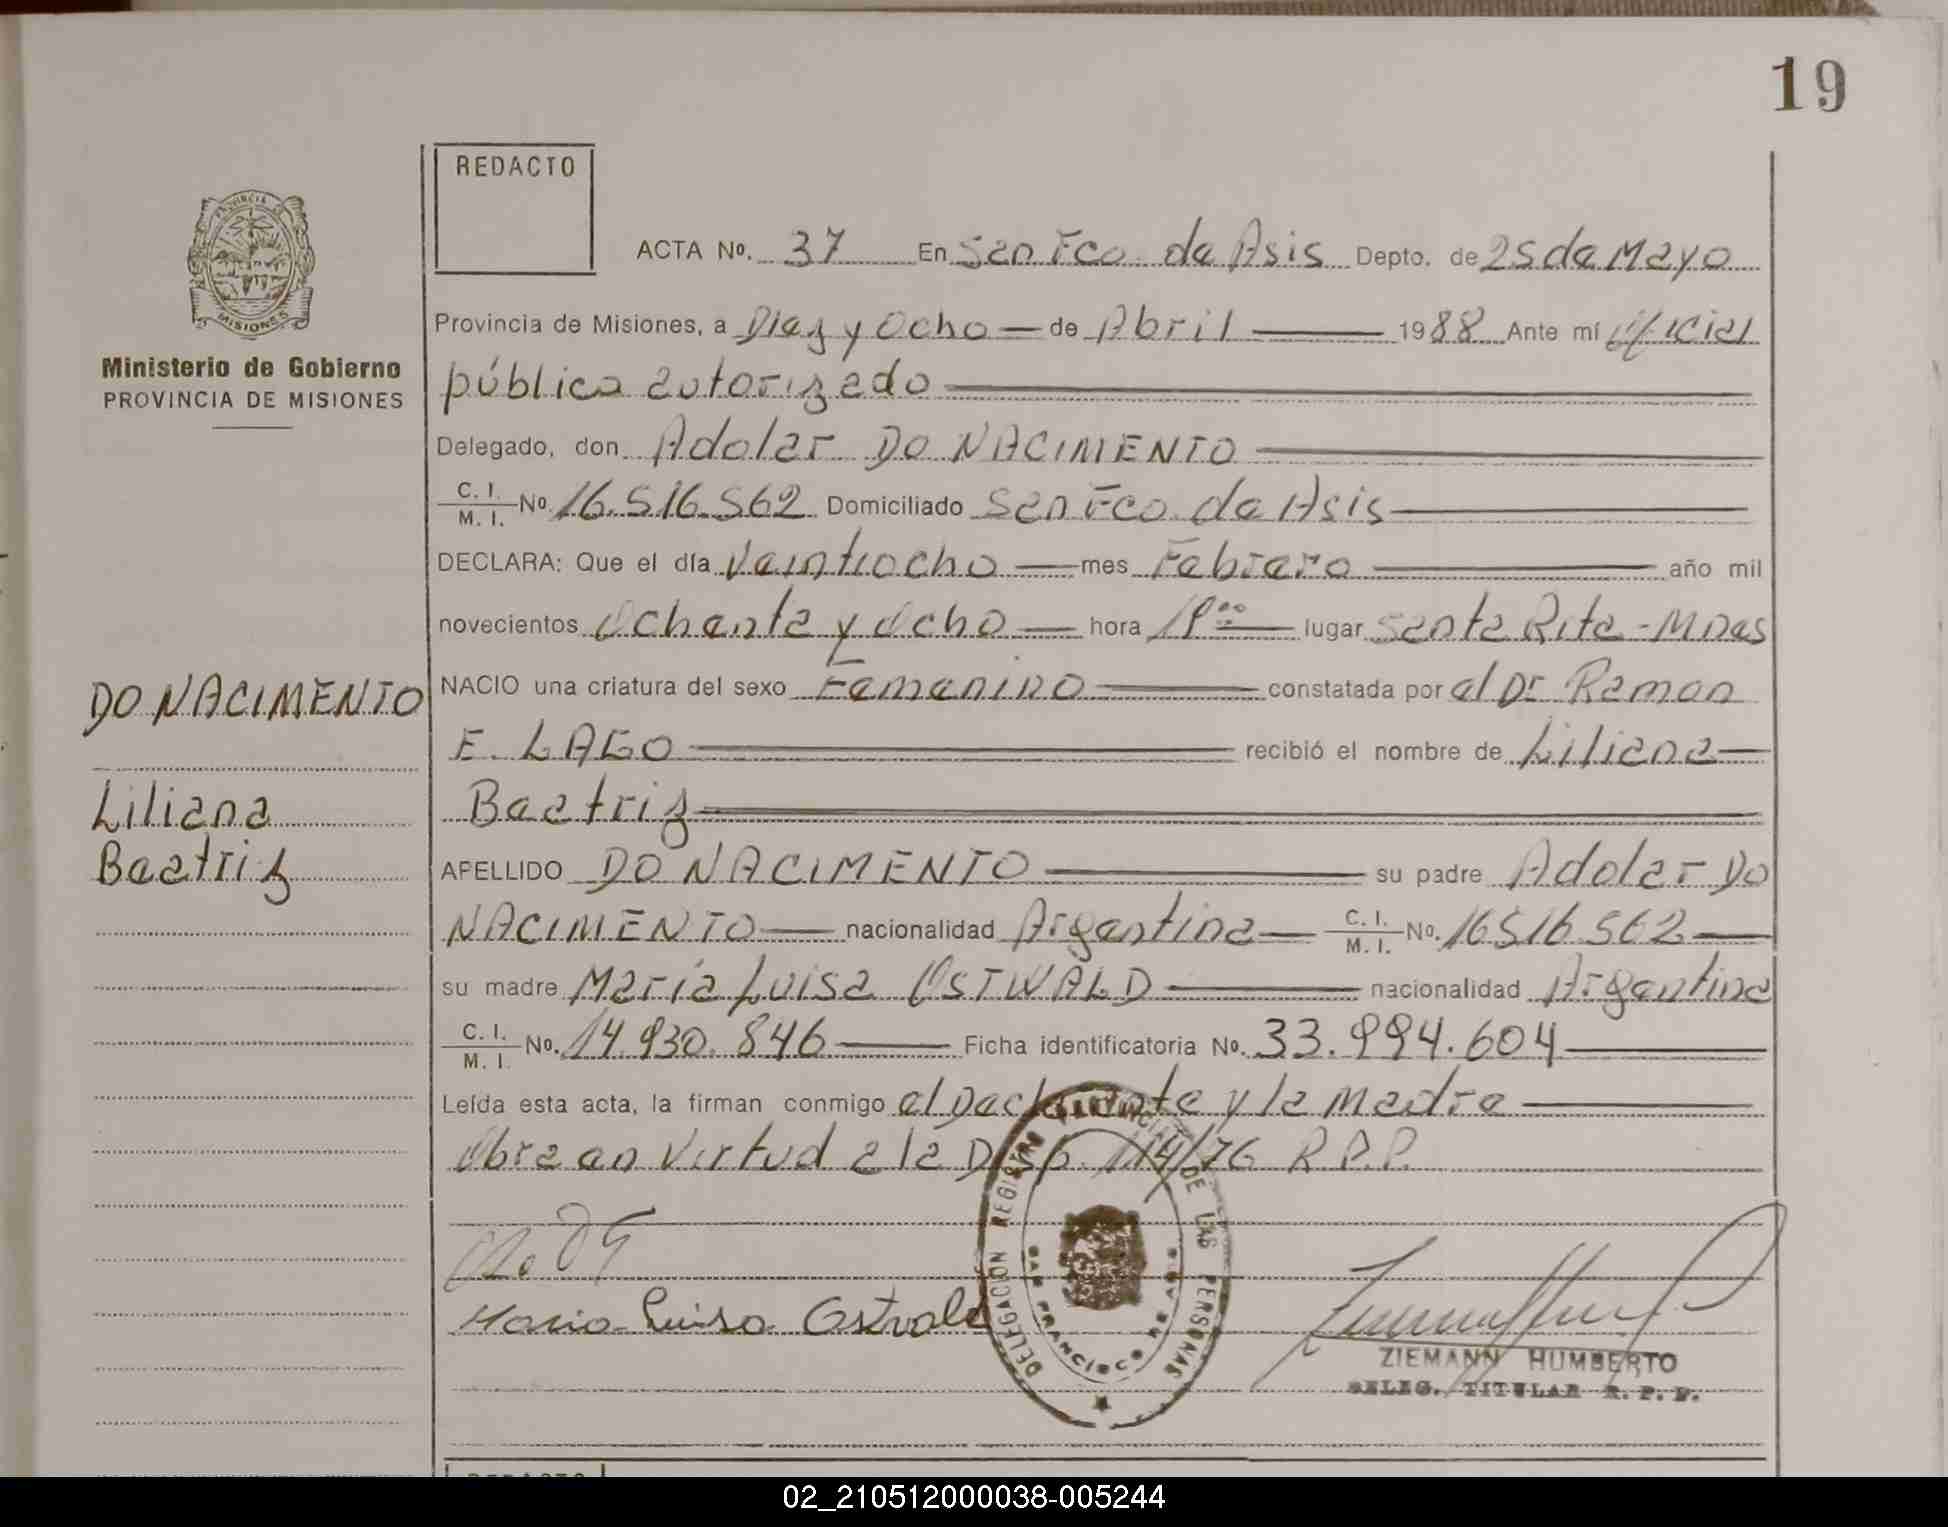 19
REDACTO
ACTA Nº. 37 En San Fco. de Asis Depto. de 25 de Mayo
Provincia de Misiones, a Diez y Ocho de Abril 1988 Ante mí Oficial
público autorizado
Delegado, don Adolar DO NACIMENTO
C. I. M. I. Nº. 16.516.562 Domiciliado San Fco. de Asis
DECLARA: Que el día Veintiocho mes Febrero año mil
novecientos Ochenta y Ocho hora lugar Santa Rita - Mnes
NACIO una criatura del sexo Femenino constatada por el Dr Ramon
E. LAGO recibió el nombre de Liliana
Beatriz
APELLIDO DO NACIMENTO su padre Adolar DO
NACIMENTO nacionalidad Argentina C. I. M. I. Nº. 16.516.562
su madre María Luisa OSTWALD nacionalidad Argentina
C. I. M. I. Nº. 14.930.846 Ficha identificatoria Nº. 33.994.604
Leída esta acta, la firman conmigo el Declarante y la Madre
Obra en Virtud a la Disp. 114/76 R.P.P.
Maria Luisa Ostwald
ZIEMANN HUMBERTO
DELEG. TITULAR R. P. P.
DELEGACION REGISTRO PROVINCIAL DE LAS PERSONAS
SAN FRANCISCO DE ASIS
PROVINCIA DE
MISIONES
Ministerio de Gobierno
PROVINCIA DE MISIONES
DO NACIMENTO
Liliana
Beatriz
REDACTO
02_210512000038-005244